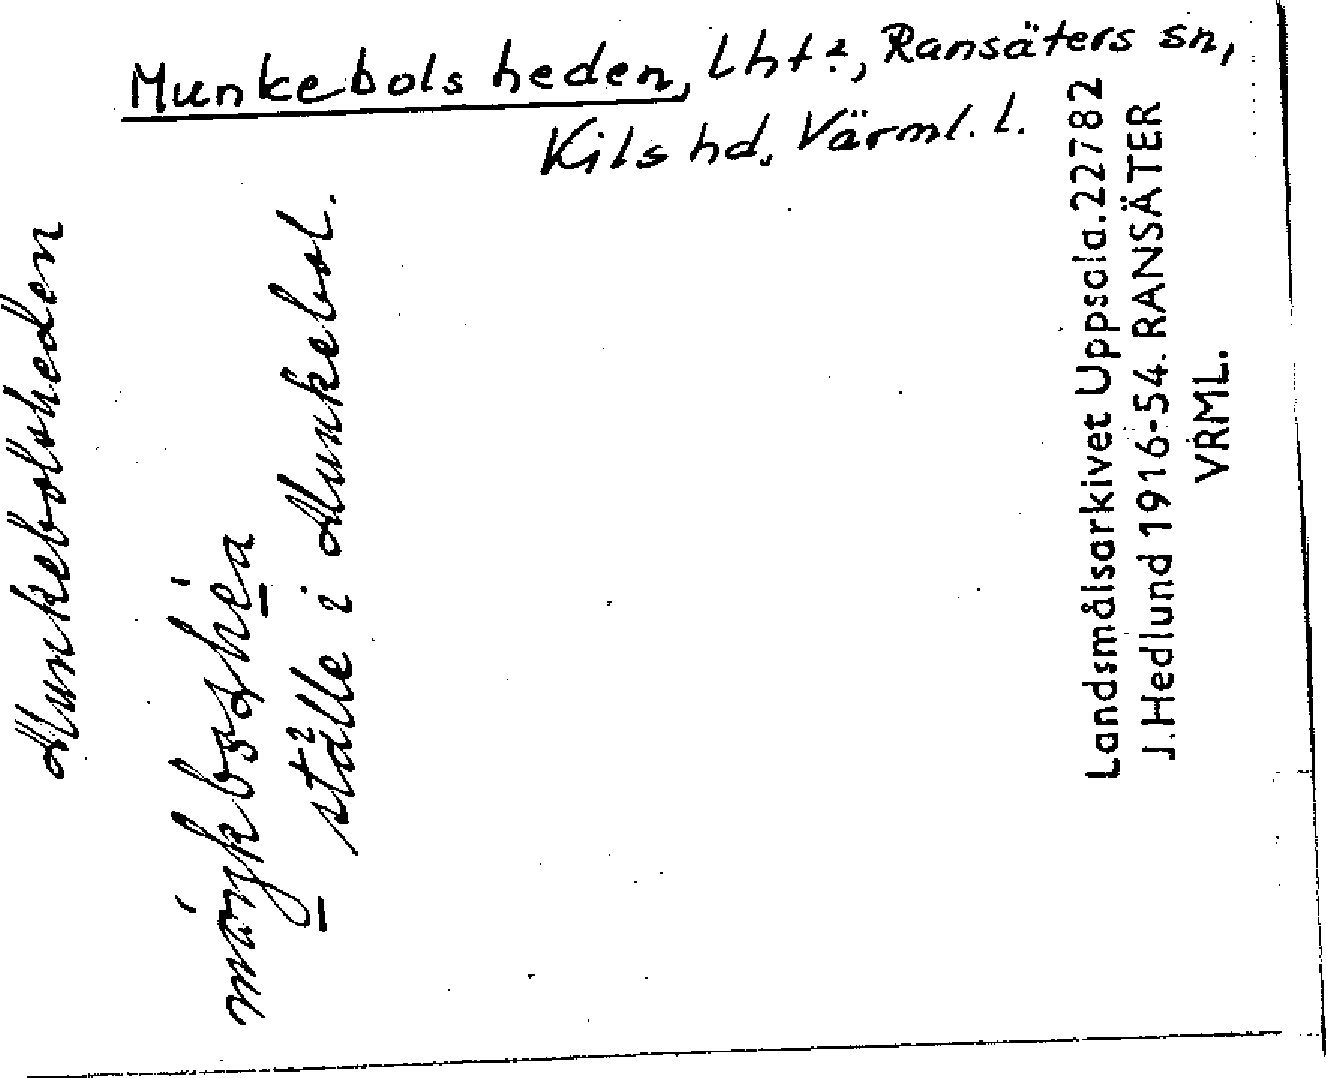 Munkebolsheden, Lht?, Ransäters sn,
Kils hd, Värml. l.
Munkebolsheden
ställe i Munkebol.
Landsmålsarkivet Uppsala. 22782
J. Hedlund 1916-54. RANSÄTER
VRML.